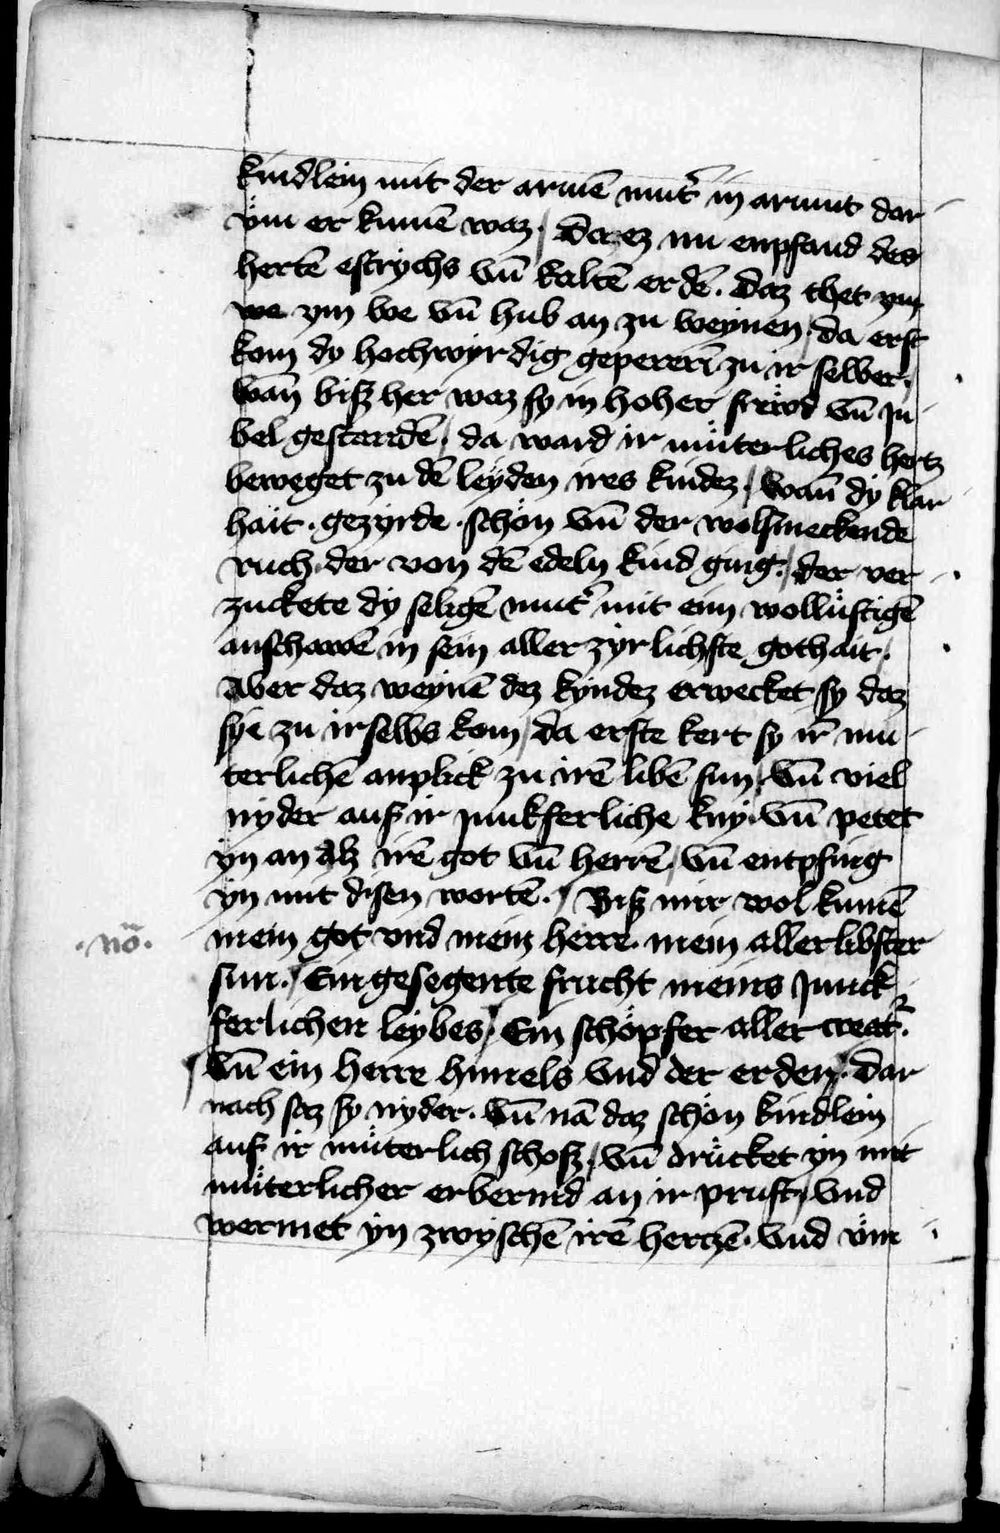 kindlein mit der armē mutʾ in armut dar
vm̈ er kumē waz / Da ez nu enpfand des
hertē estrychs vn̄ kaltē erdē. daz thet ym
we ym we vn̄ hub an zu weynen / da erst
kom dy hochwyrdig gepererī zu ir selber.
wan̄ bisz her waz sy in hoher frewd vn̄ Ju
bel gestandē / da ward ir müterliches hertz
beweget zu dē leyden ires kindez / wan̄ dy klar
hait · gezyrde · schön vn̄ der wolsmeckende
ruch · der von dē edeln kind ging / der ver
zuckete dy seligē mutʾ mit eim wollüstigē
anschawē in sein aller zyrlichste gothait /
Aber daz weynē dez kyndez erwecket sy daz
sye zu ir selbs kom / da erste kert sy ir̄ mu
terlichē anplick zu irē libē sun / vn̄ viel
nyder auf ir Junkferliche kny · vn̄ petet
yn an alz irē got vn̄ herrē / vn̄ entpfing
yn mit disen wortē · / Bisz mir wol kumē
· nō ·
mein got vnd mein herre · mein allerlibster
sun / Ein gesegente frucht meins Junck
ferlichen leybes / Ein schöpfer aller creatʾ.
/ vn̄ ein herre himels vnd der erden / · dar
nach saz sy nyder · vn̄ nā daz schön kindlein
auf ir müterlich schosz / vn̄ drücket yn mit
müterlicher erbermd an ir prust / vnd
wermet yn zwyschē irē herczē · vnd vm̈